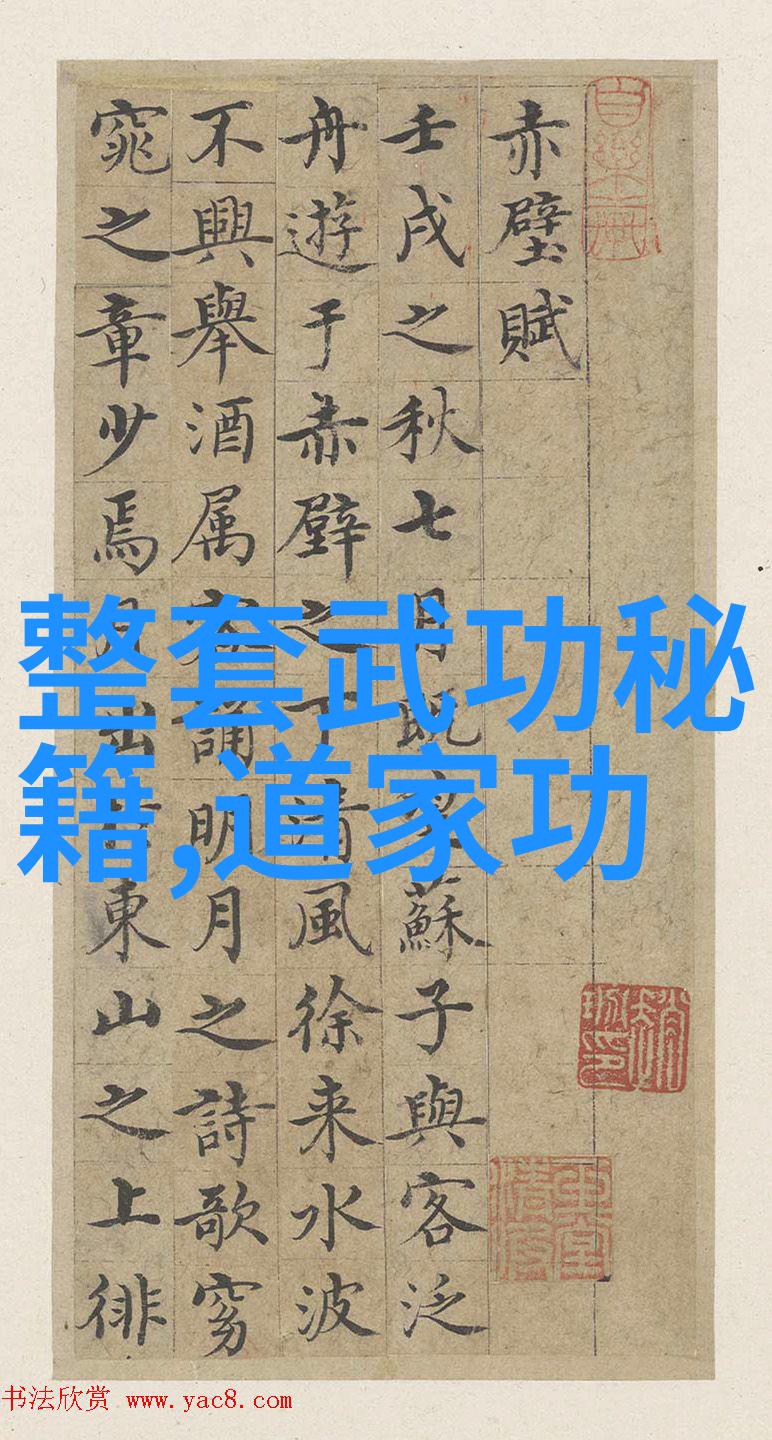 赤壁賦
壬戌之秋七月既望蘇子與客泛
舟遊于赤壁之下清風徐来水波
不興舉酒属客誦明月之詩歌窈
窕之章少焉月出於東山之上徘
整套武功秘
籍,道家功
书法欣赏 www.yac8.com